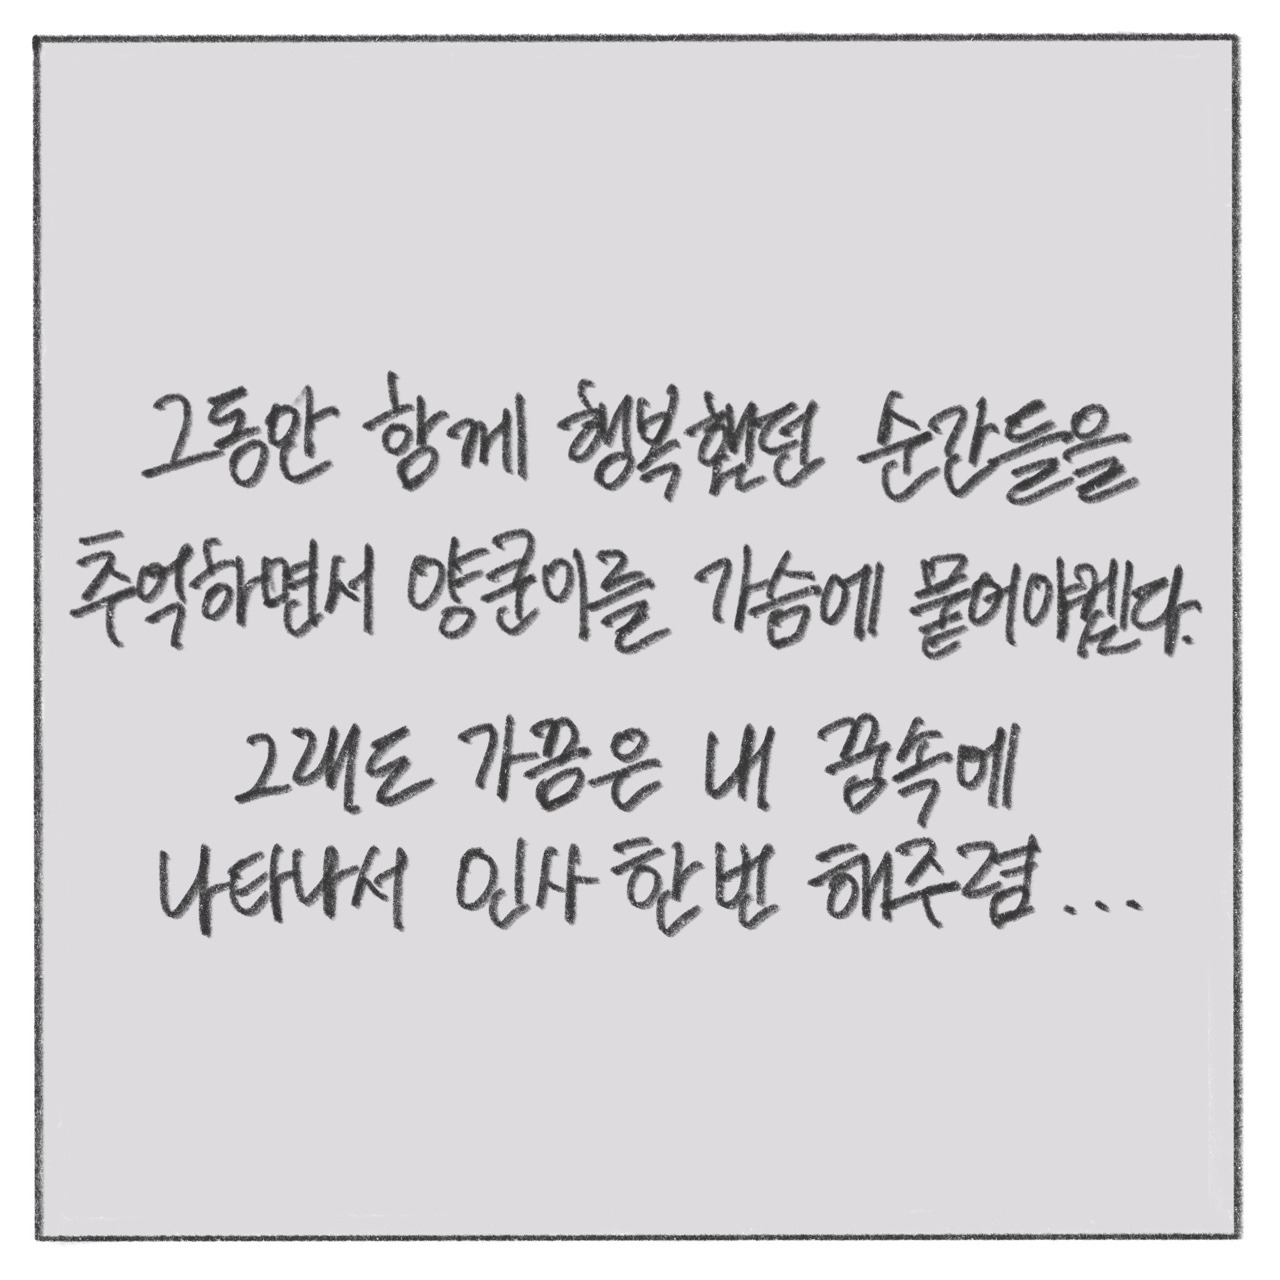 그동안 함께 행복했던 순간들을
추억하면서 양군이를 가슴에 묻어야겠다.
그래도 가끔은 내 꿈속에
나타나서 인사 한번 해주렴...